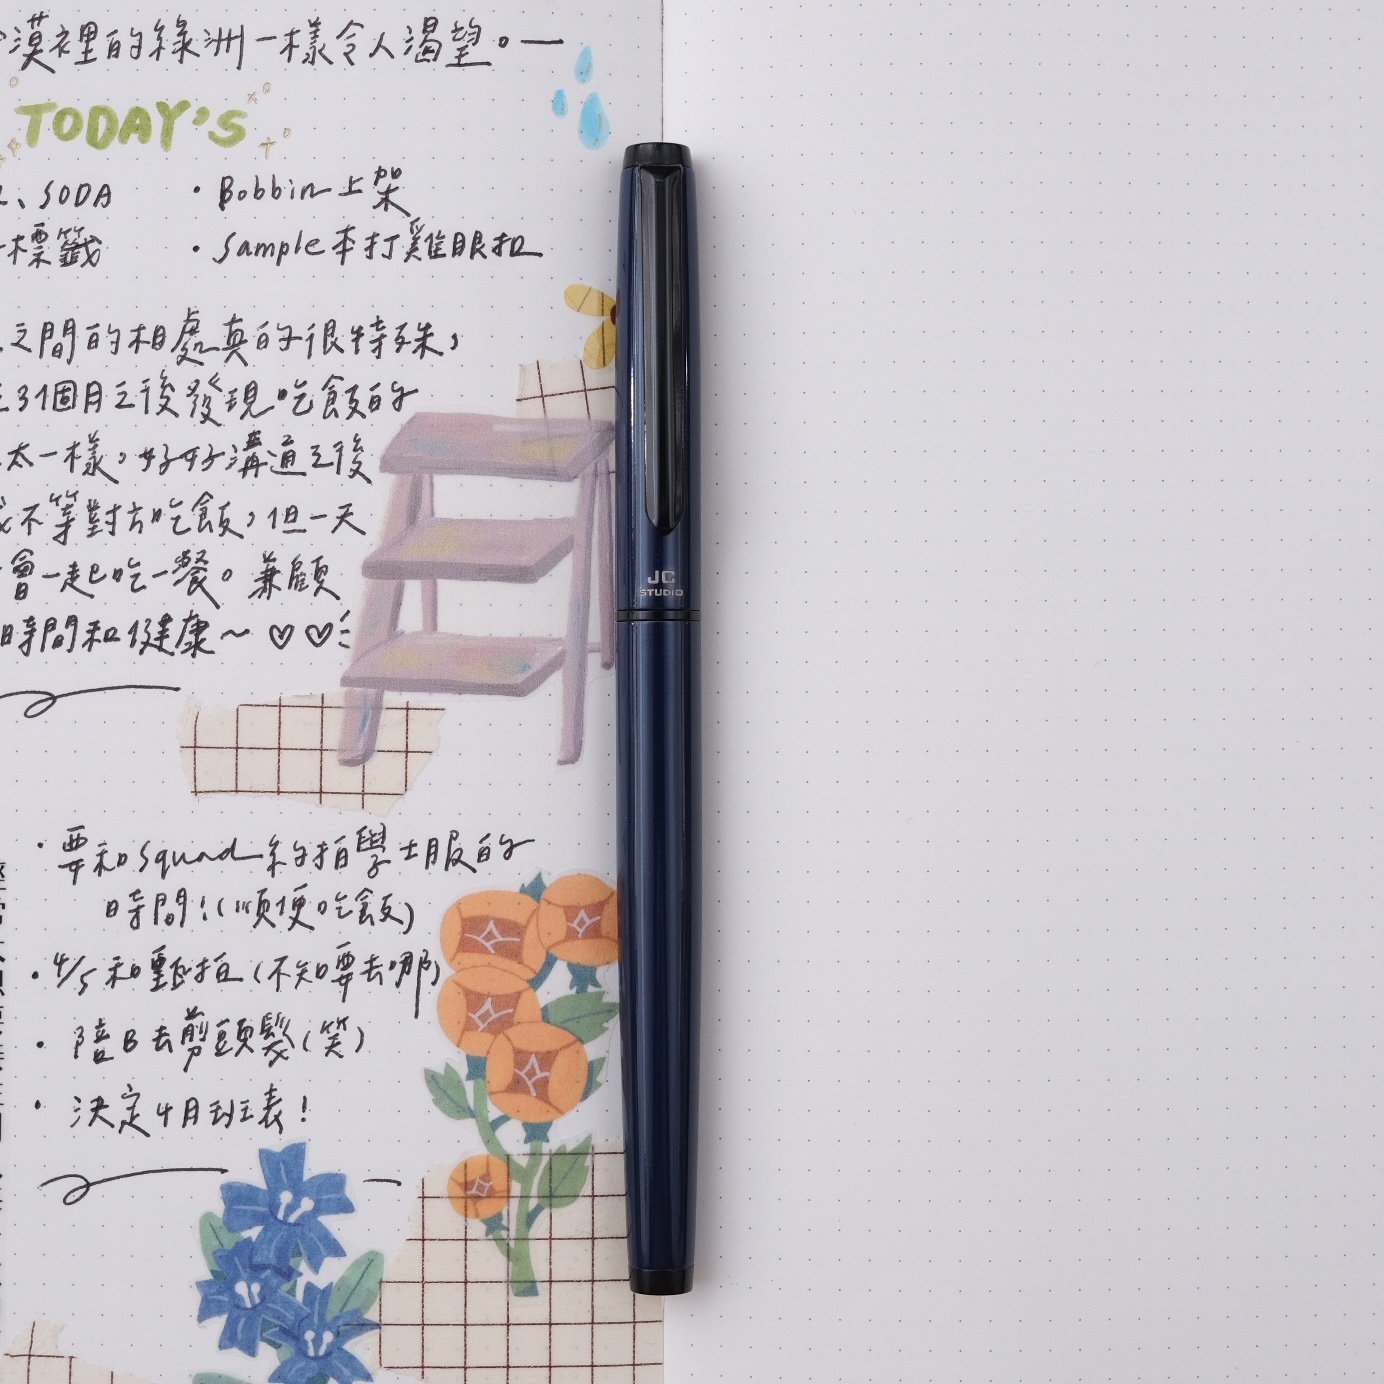 漠裡的綠洲一樣令人渴望。一
TODAY'S
、SODA
・Bobbin上架
標籤
・Sample本打雞眼扣
之間的相處真的很特殊,
31個月之後發現吃飯的
太一樣,好好溝通之後
不等對方吃飯,但一天
會一起吃一餐。兼顧
時間和健康~♡♡
JC
STUDIO
・要和Squad約拍學士服的
時間!(順便吃飯)
・4/5和甄拍(不知要去哪)
・陪B去剪頭髮(笑)
・決定4月班表!